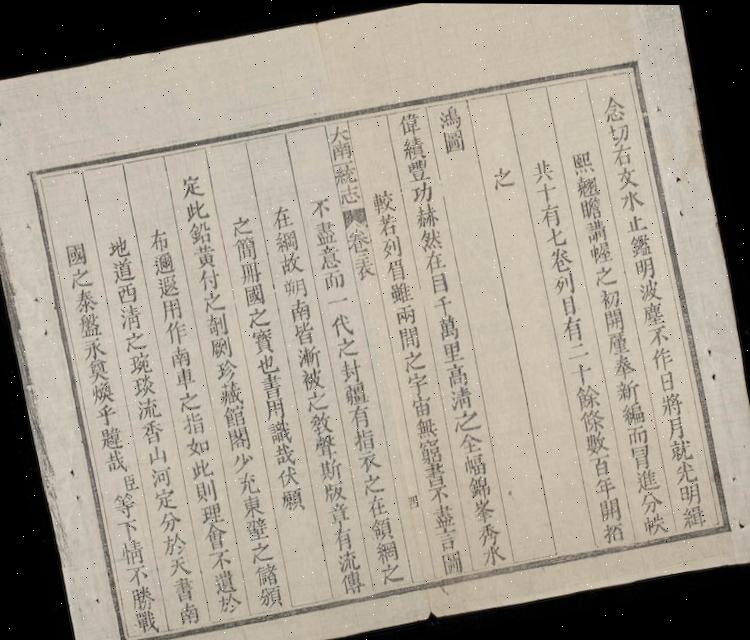 念切右文水止鑑明波塵不作日將月就光明緝
熙翹瞻講幄之初開穫奉新編而冒進分帙
共十有七卷列目有二十餘條數百年開拓
之
鴻圖
偉績豐功赫然在目千萬里高清之全幅錦峯秀水
較若列眉雖兩間之宇宙無窮書不盡言圖
大南一統志 卷 表 四
不盡意而一代之封疆有指衣之在領綱之
在綱故朔南皆漸被之敎聲斯版章有流傳
之簡冊國之寶也書用識哉伏願
定此鉛黃付之剞劂珍藏館閣少充東壁之儲頒
布邇遐用作南車之指如此則理會不遺於
地道西清之琬琰流香山河定分於天書南
國之泰盤永奠煥乎韙哉臣等下情不勝戰